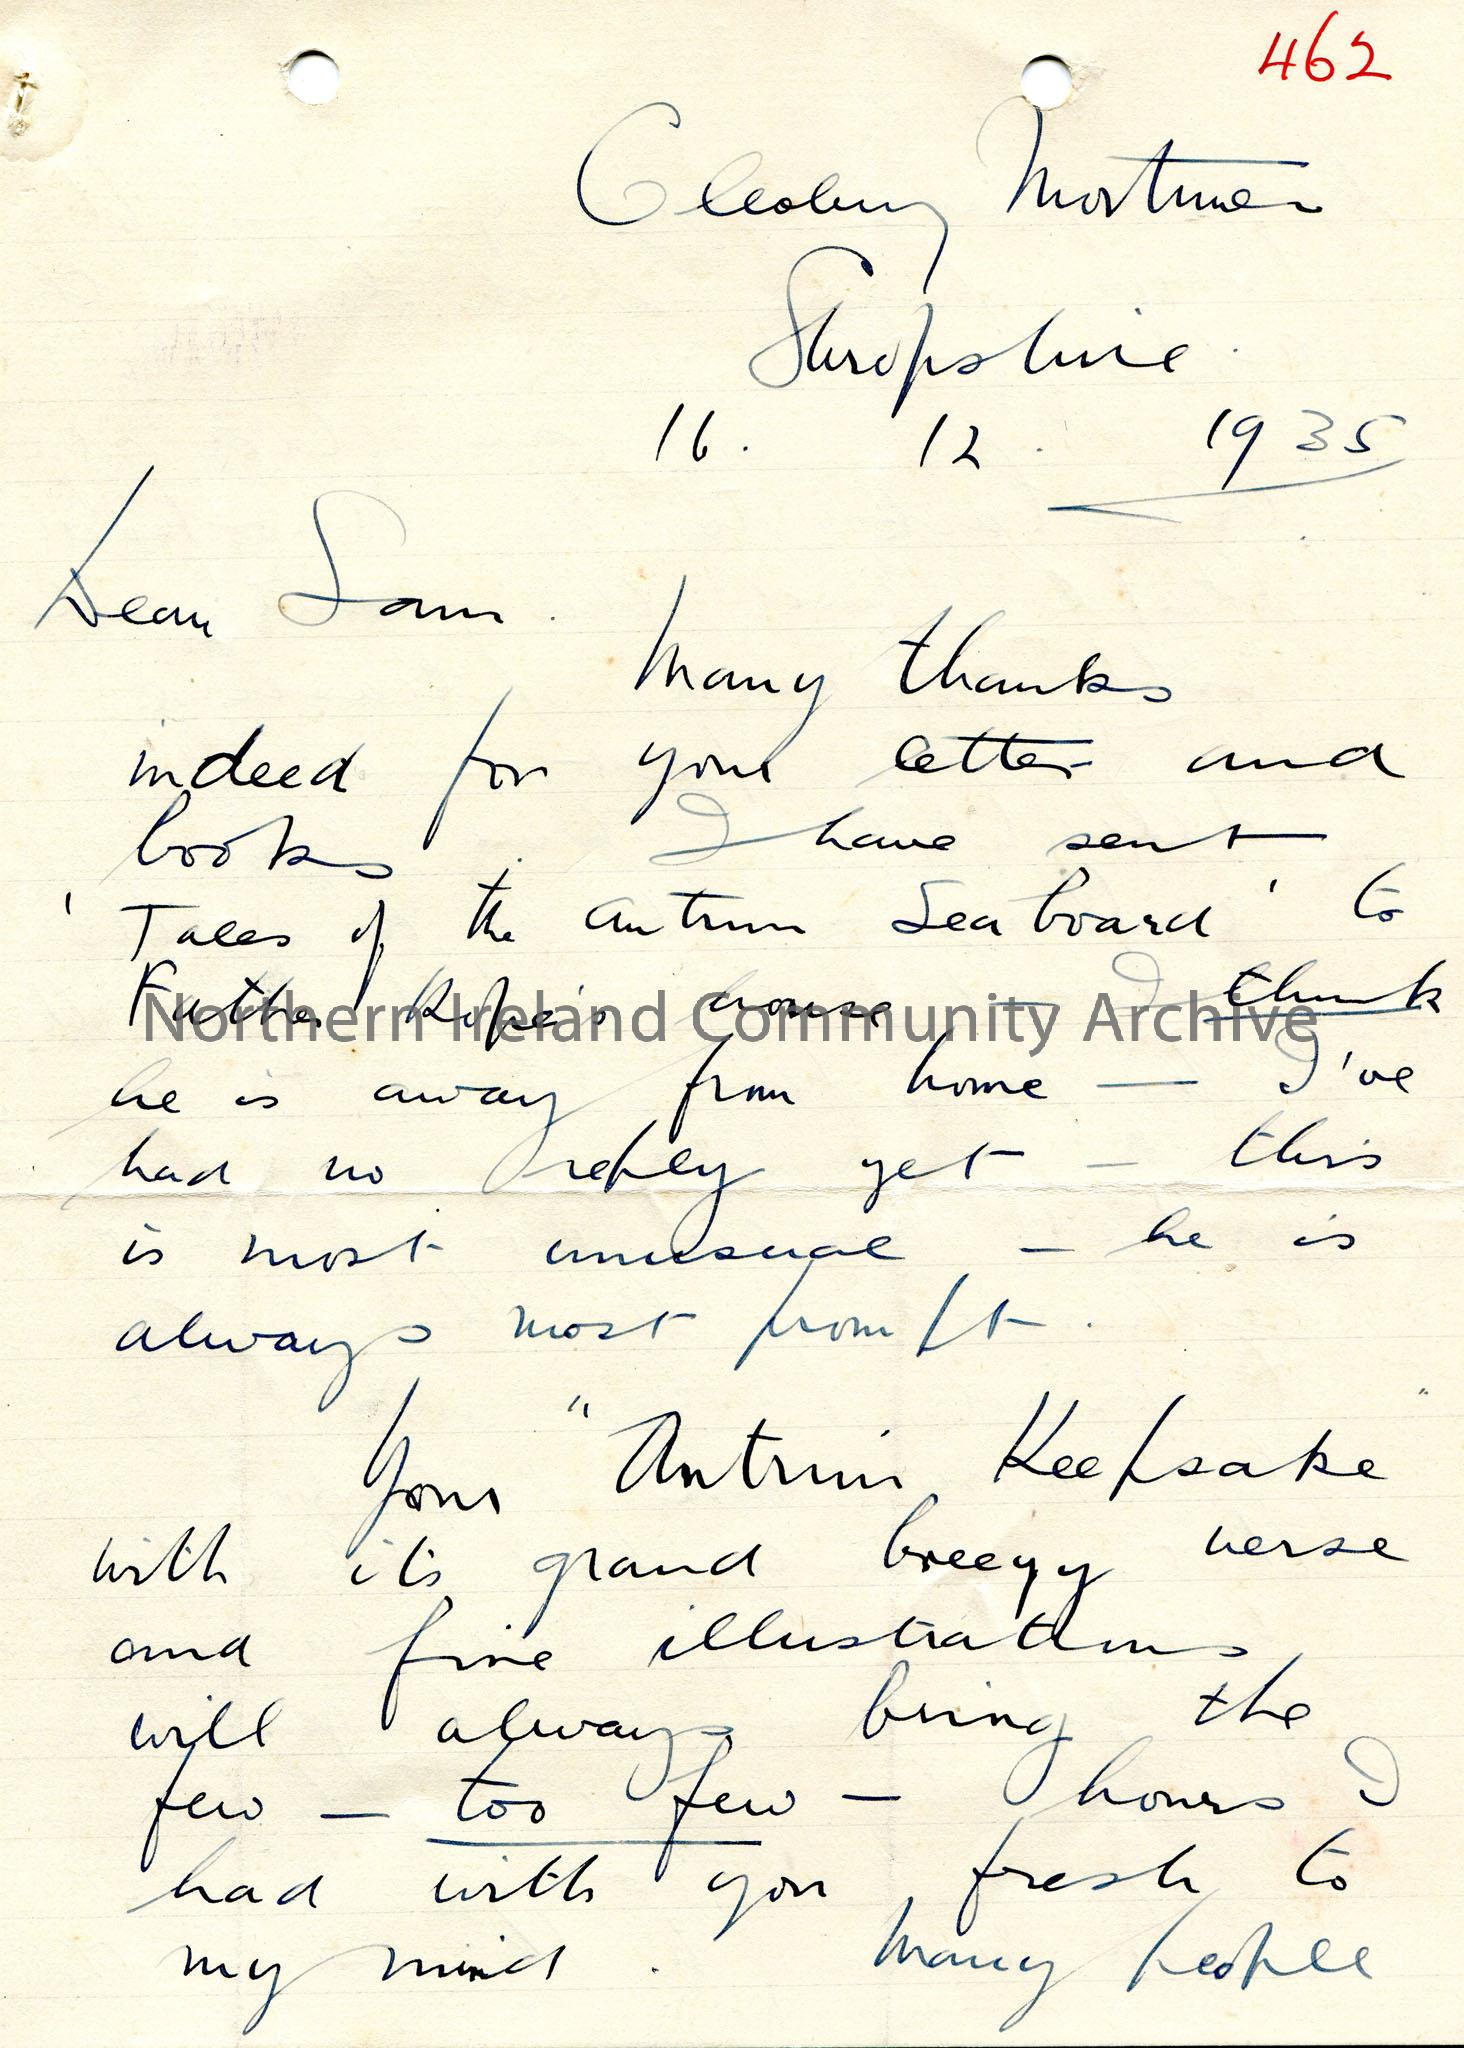 462
Cleobury Mortimer
Shropshire.
16. 12. 1935
Dear Sam.
Many thanks
indeed for your letter and
books. I have sent
'Tales of the Antrim Seaboard' to
Father Rope's house – I think
Northern Ireland Community Archive
he is away from home — I've
had no reply yet – this
is most unusual – he is
always most prompt.
Your "Antrim Keepsake"
with it's grand breezy verse
and fine illustrations
will always bring the
few – too few – hours I
had with you fresh to
my mind. Many people